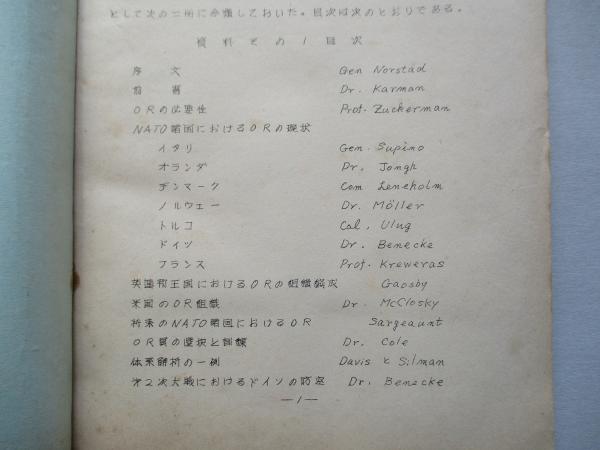 として次の二冊に分類しておいた。目次は次のとおりである。
資料その1目次
序文 Gen Norstad
前書 Dr. Karman
ORの必要性 Prof. Zuckerman
NATO諸国におけるORの現状
イタリ Gen. Supino
オランダ Dr. Jongh
デンマーク Com Leneholm
ノルウェー Dr. Möller
トルコ Cal, Ulug
ドイツ Dr. Benecke
フランス Prof. Kreweras
英国和王国におけるORの組織 Gaosby
米国のOR組織 Dr. McClosky
将来のNATO諸国におけるOR Sargeaunt
OR員の選択と訓練 Dr. Cole
体系解析の一例 Davis と Silman
第2次大戦におけるドイツの防空 Dr. Benecke
—1—